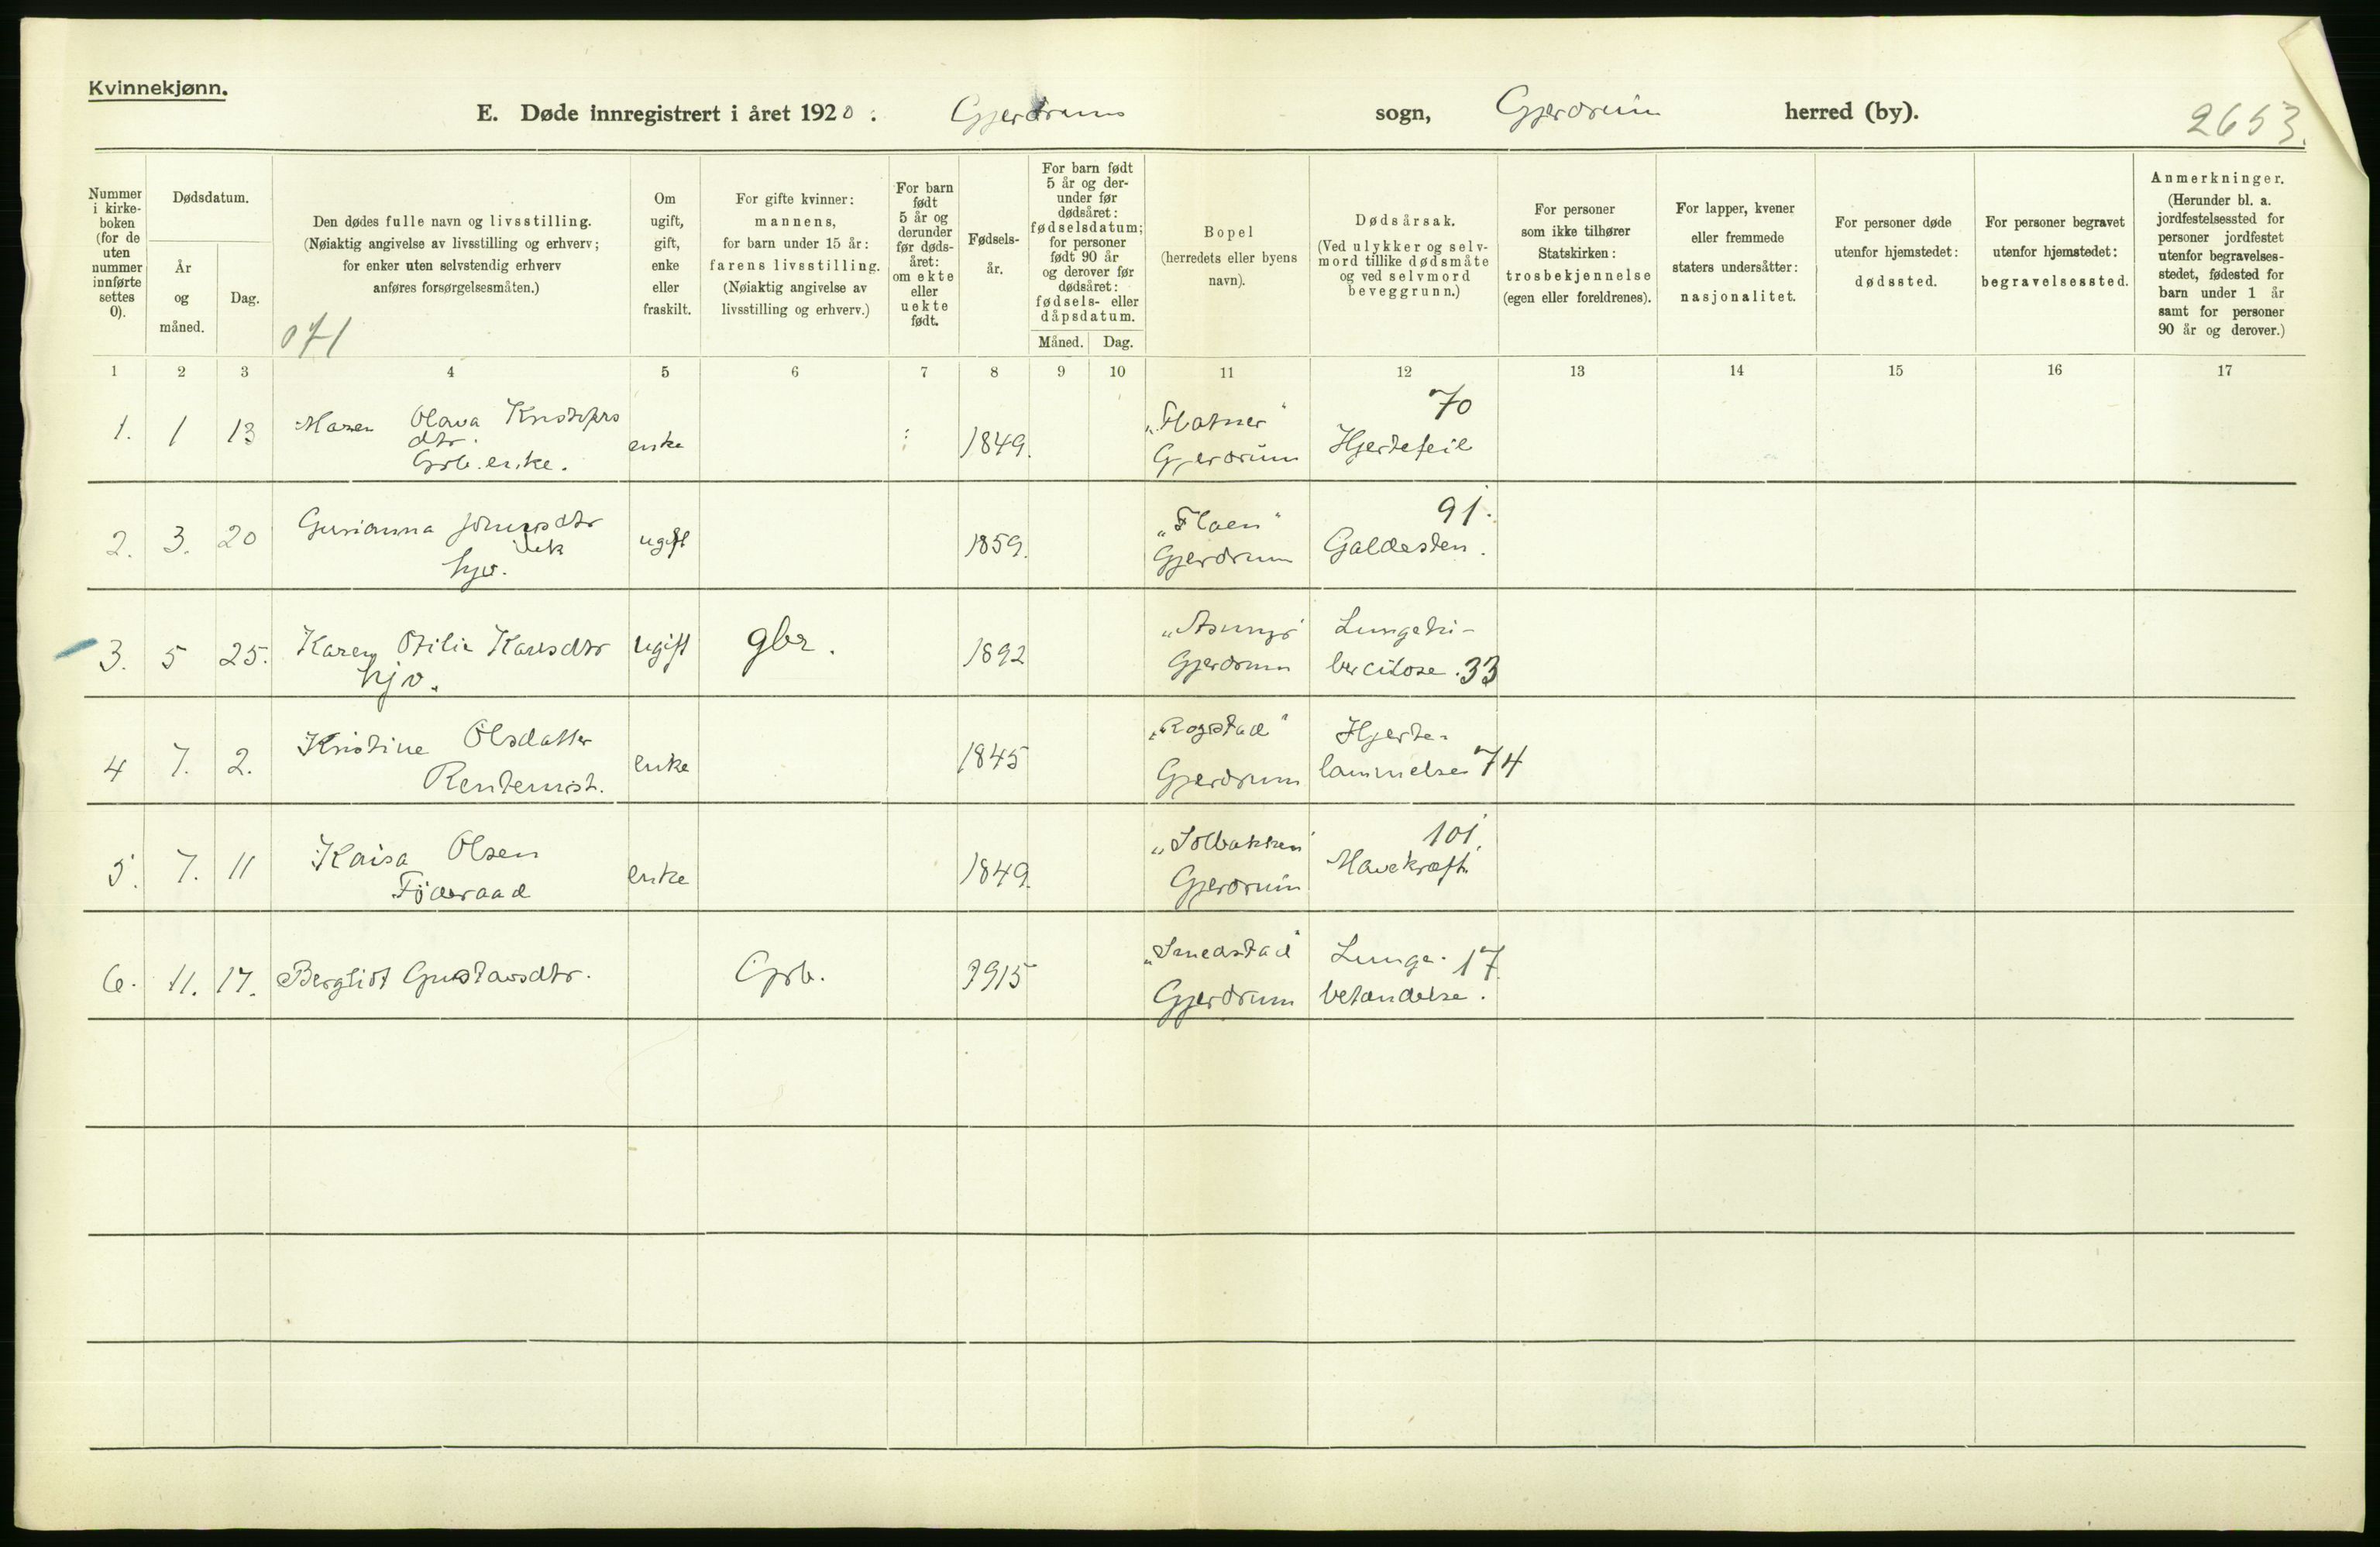 Kvinnekjønn.
E. Døde innregistrert i året 1920 : Gjerdrums sogn, Gjerdrum herred (by).
2653.
Nummer i kirke- boken (for de uten nummer innførte settes 0).
Dødsdatum.
År og måned.
Dag.
Den dødes fulle navn og livsstilling.
(Nøiaktig angivelse av livsstilling og erhverv;
for enker uten selvstendig erhverv
anføres forsørgelsesmåten.)
071
Om ugift, gift, enke eller fraskilt.
For gifte kvinner:
mannens,
for barn under 15 år:
farens livsstilling.
(Nøiaktig angivelse av
livsstilling og erhverv.)
For barn født 5 år og derunder før døds- året: om ekte eller uekte født.
Fødsels- år.
For barn født 5 år og der- under før dødsåret: fødselsdatum; for personer født 90 år og derover før dødsåret: fødsels- eller dåpsdatum.
Måned. Dag.
Bopel
(herredets eller byens
navn).
Dødsårsak.
(Ved ulykker og selv-
mord tillike dødsmåte
og ved selvmord
beveggrunn.)
For personer
som ikke tilhører
Statskirken:
trosbekjennelse
(egen eller foreldrenes).
For lapper, kvener
eller fremmede
staters undersåtter:
nasjonalitet.
For personer døde
utenfor hjemstedet:
dødssted.
For personer begravet
utenfor hjemstedet:
begravelsessted.
Anmerkninger.
(Herunder bl. a.
jordfestelsessted for
personer jordfestet
utenfor begravelses-
stedet, fødested for
barn under 1 år
samt for personer
90 år og derover.)
1 2 3 4 5 6 7 8 9 10 11 12 13 14 15 16 17
1. 1 13 Maren Olava Kristofers
dtr.
Grb. enke. enke 1849. „Flatner" Gjerdrum 70 Hjertefeil
2. 3. 20 Gurianna
hjv. ugift 1859. „Flaen" Gjerdrum 91. Galdesten.
3. 5 25. Karen Otilie Karlsdtr
hjv. ugift gbr. 1892 Gjerdrum Lungetu-
berculose. 33
4 7. 2. Kristine Olsdatter
Rentenist. enke 1845 „Rogstad" Gjerdrum Hjerte-
lammelse 74
5. 7. 11 Kaisa Olsen
Föderaad enke 1849. „Solbakken" Gjerdrum 101. Mavekræft.
6. 11. 17. Bergliot Gustavsdtr. Grb. 1915 „Smedstad" Gjerdrum Lunge- 17
betændelse.